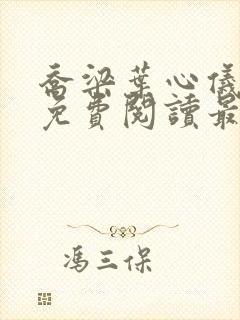 喬梁葉心儀
免費閱讀最
馮三保